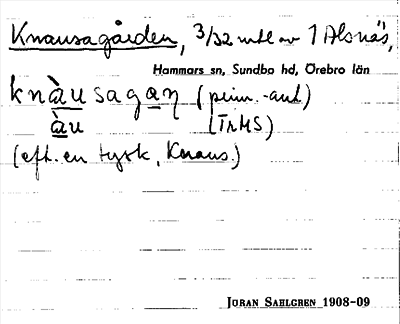 Knausagården, 3/32 mtl av 1 Alsnäs,
Hammars sn, Sundbo hd, Örebro län
knàusagan̡ (prim.-ant)
àu (TrMS)
(eft. en tysk, Knaus.)
JÖRAN SAHLGREN 1908-09